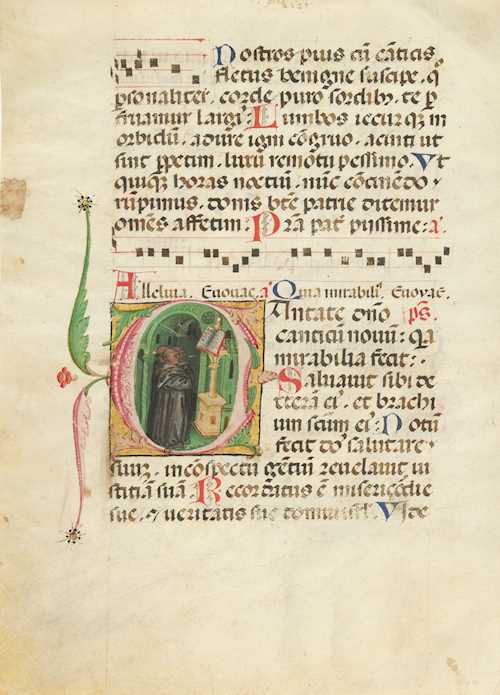 Nostros pius cũ cãticis
fletus benigne suscipe. q̃
psonaliter. corde puro sordibꝫ. te p
fruamur largiꝰ. Lumbos iecur qꝫ in
orbidũ. adure igni cõgruo. acinti ut
sint ppetim. luxu remoto pessimo. Vt
quiqꝫ horas noctiũ. nũc cõcinẽdo.
rũpimus. donis bt̃e patrie ditemur
omẽs affetim. Pr̃a pat̃ piissime: a.
Alleluia. Euouae. a̾ Quia mirabili. Euouae.
Cantate dño ps.
canticũ nouũ: q̃a
mirabilia fecit:
Saluauit sibi de
xtera eiꝰ. et brachi
um scũm eiꝰ. Notũ
fecit do᷒ salutare
suuꝫ. in cõspectu gẽtiũ reuelauit iu
stitiã suã. Recordatus ẽ misericordie
sue. ⁊ ueritatis sue domui isrl̃. Vide